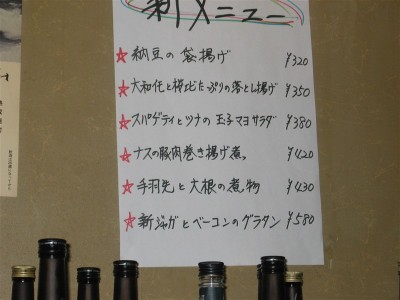 新メニュー
☆納豆の袋揚げ ¥320
☆大和芋と桜エビたっぷりの落とし揚げ ¥350
☆スパゲティとツナの玉子マヨサラダ ¥380
☆ナスの豚肉巻き揚げ煮。 ¥420
☆手羽先と大根の煮物 ¥430
☆新ジャガとベーコンのグラタン ¥580